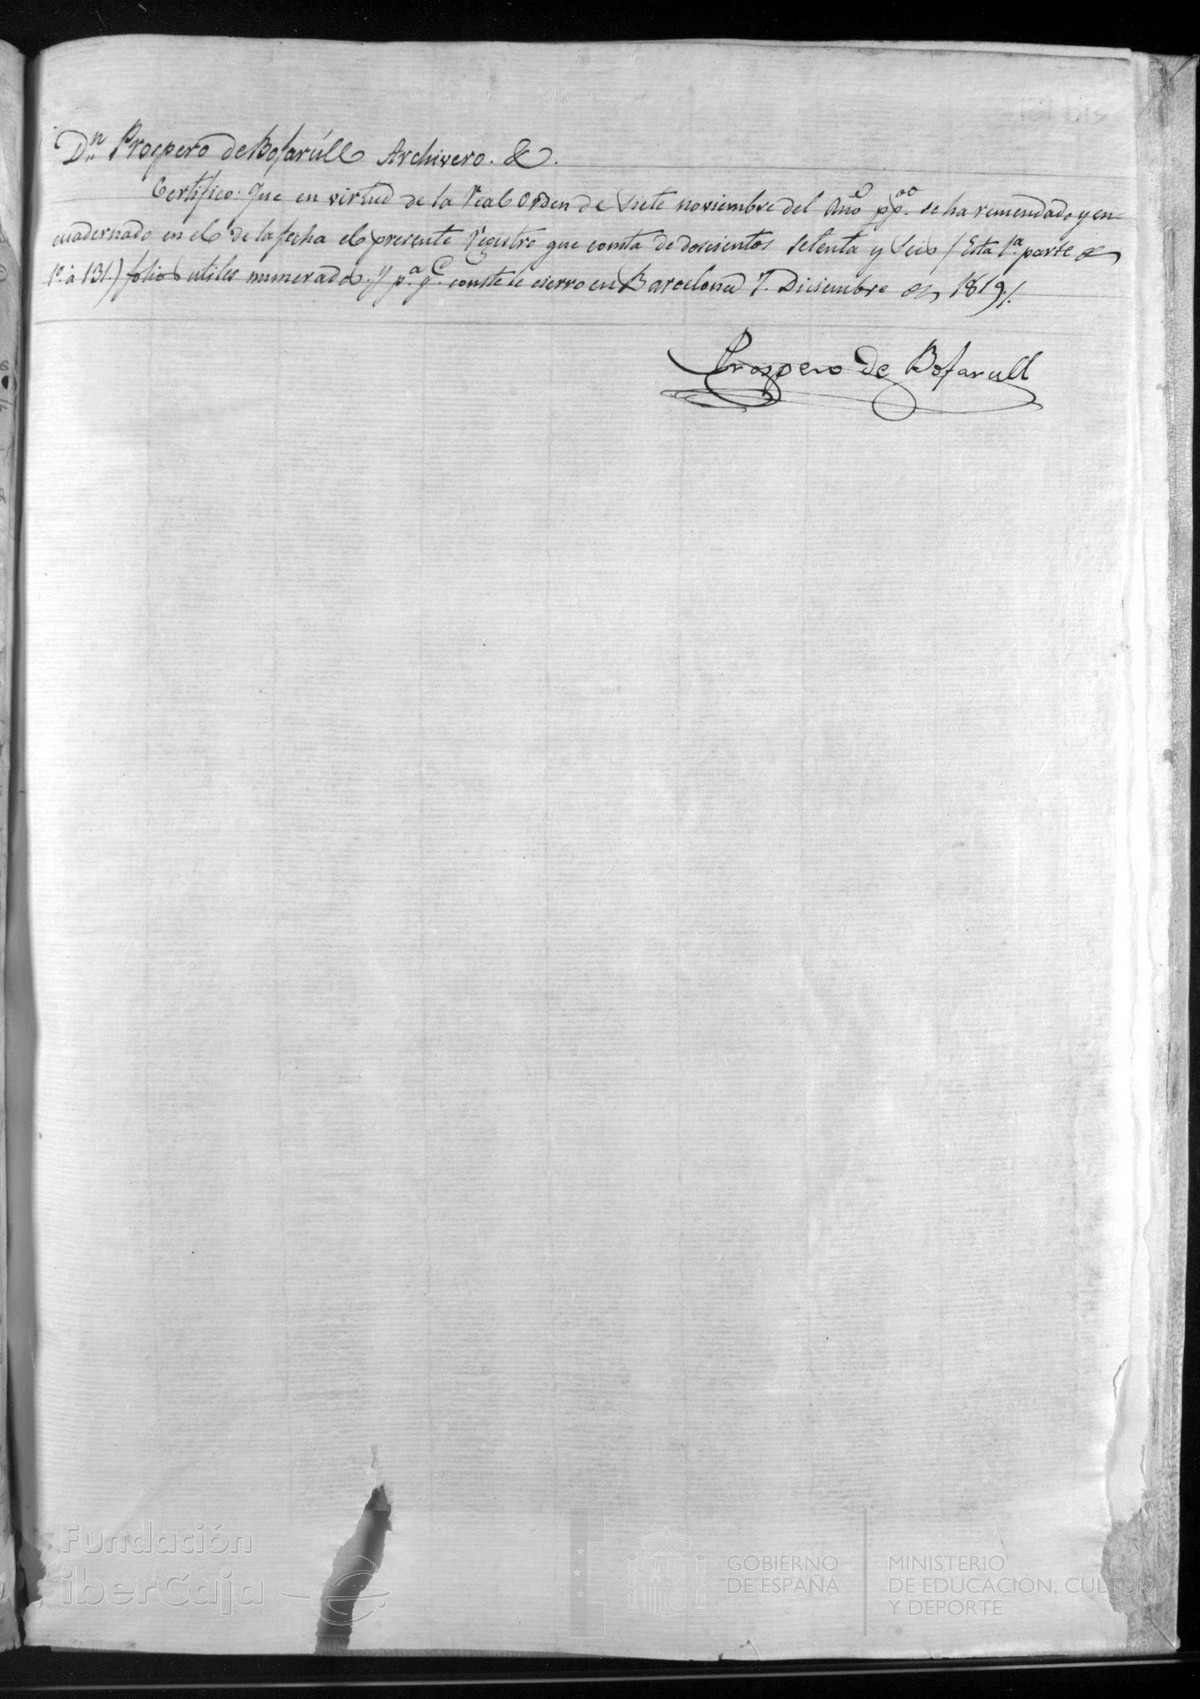 Dn Prospero de Bofarúll Archivero. &.
Certifico: Que en virtud de la Real Orden de siete noviembre del Año ppdo. se ha remendado y en=
cuadernado en el de la fecha el presente Registro que consta de doscientos setenta y seis (Esta 1a. parte de
1o. á 131.) folios utiles numerados. Y pa. qe. conste le cierro en Barcelona 7. Diciembre de 1819./.
Prospero de Bofarull
Fundación
iberCaja
GOBIERNO
DE ESPAÑA
MINISTERIO
DE EDUCACIÓN, CULTURA
Y DEPORTE